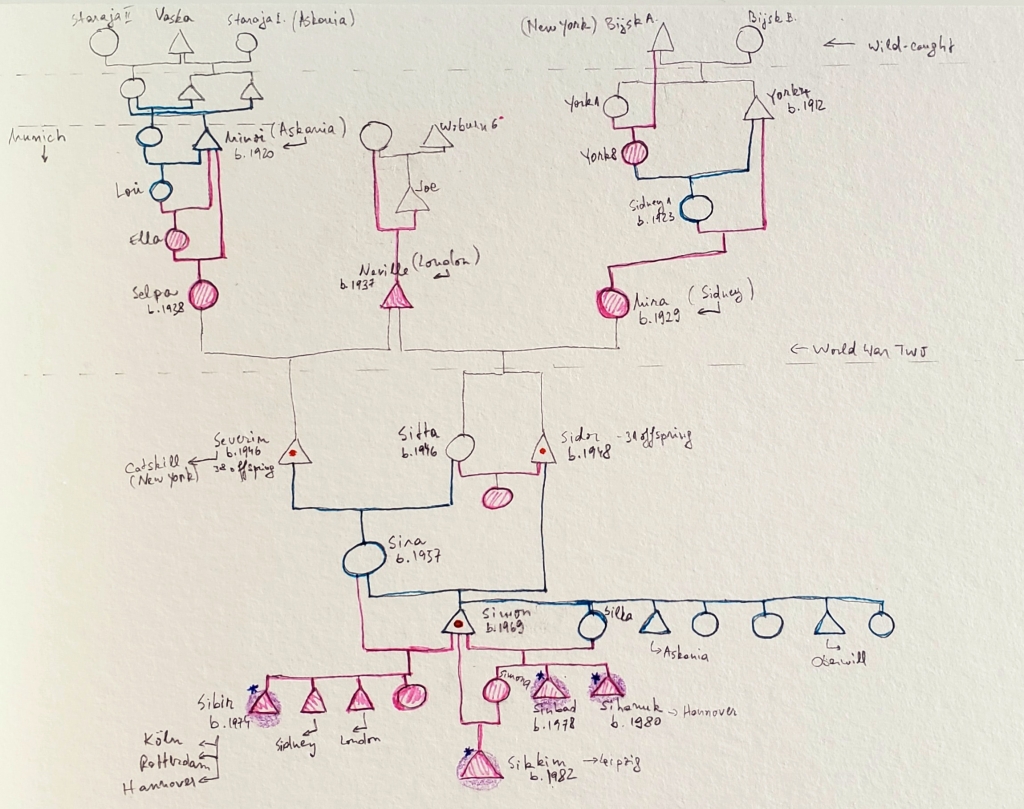 Staraja II
Vaska
Staraja I. (Askania)
(New York) Bijsk A.
Bijsk B.
← Wild-caught
York 1
York 4
b. 1912
Munich
↓
(Askania)
b. 1920
Woburn 6
York 8
Lori
Joe
Sidney 1
b. 1923
Ella
Neville (London)
b. 1937
Selpa
b. 1938
Mira (Sidney)
b. 1929
← World War Two
Severin
b. 1946
38 offspring
Catskill
(New York)
Sitta
b. 1946
Sidor - 31 offspring
b. 1948
Sira
b. 1957
Simon
b. 1969
Silka
Askania
Oberwill
Sibir
b. 1974
Sidney
London
Simona
Sinbad
b. 1978
Sihanuk → Hannover
b. 1980
Köln
Rotterdam
Hannover
Sikkim → Leipzig
b. 1982